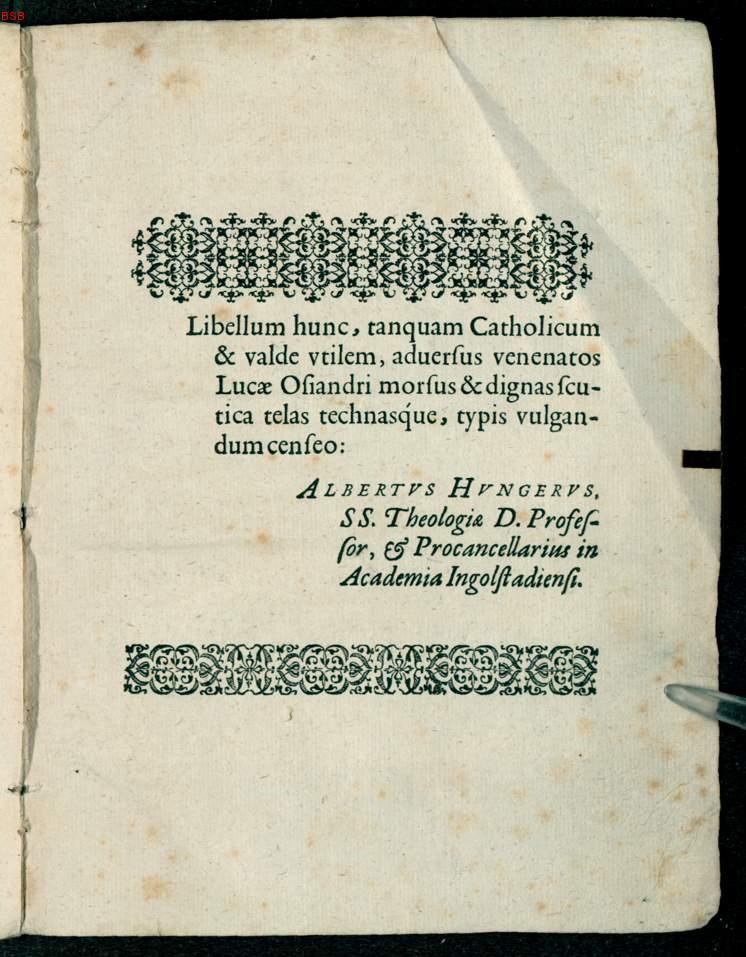 BSB
Libellum hunc, tanquam Catholicum
& valde vtilem, aduerſus venenatos
Lucæ Oſiandri morſus & dignas ſcu-
tica telas technasq́ue, typis vulgan-
dum cenſeo:
ALBERTVS HVNGERVS,
SS. Theologiæ D. Profeſ-
ſor, & Procancellarius in
Academia Ingolſtadienſi.